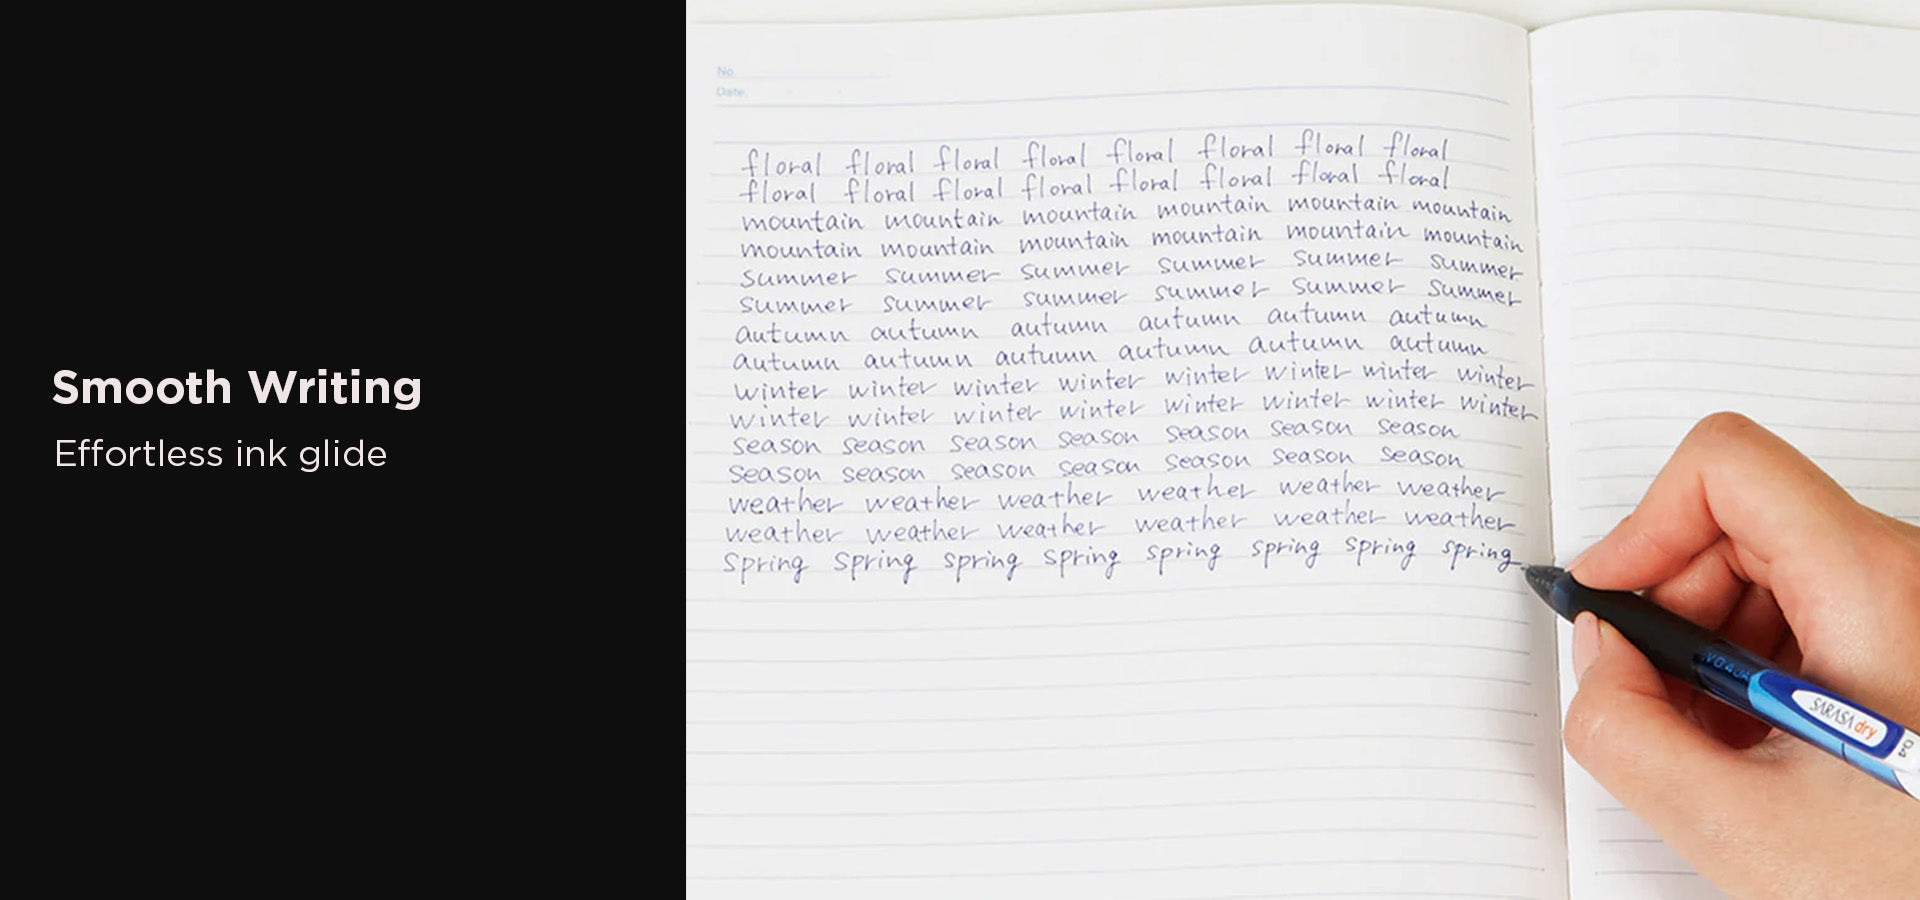 Smooth Writing
Effortless ink glide
No.
Date.
floral floral floral floral floral floral floral floral
floral floral floral floral floral floral floral floral
mountain mountain mountain mountain mountain mountain
mountain mountain mountain mountain mountain mountain
summer summer summer summer summer summer
summer summer summer summer summer summer
autumn autumn autumn autumn autumn autumn
autumn autumn autumn autumn autumn autumn
winter winter winter winter winter winter winter winter
winter winter winter winter winter winter winter winter
season season season season season season season
season season season season season season season
weather weather weather weather weather weather
weather weather weather weather weather weather
spring spring spring spring spring spring spring spring
SARASA dry
0.4